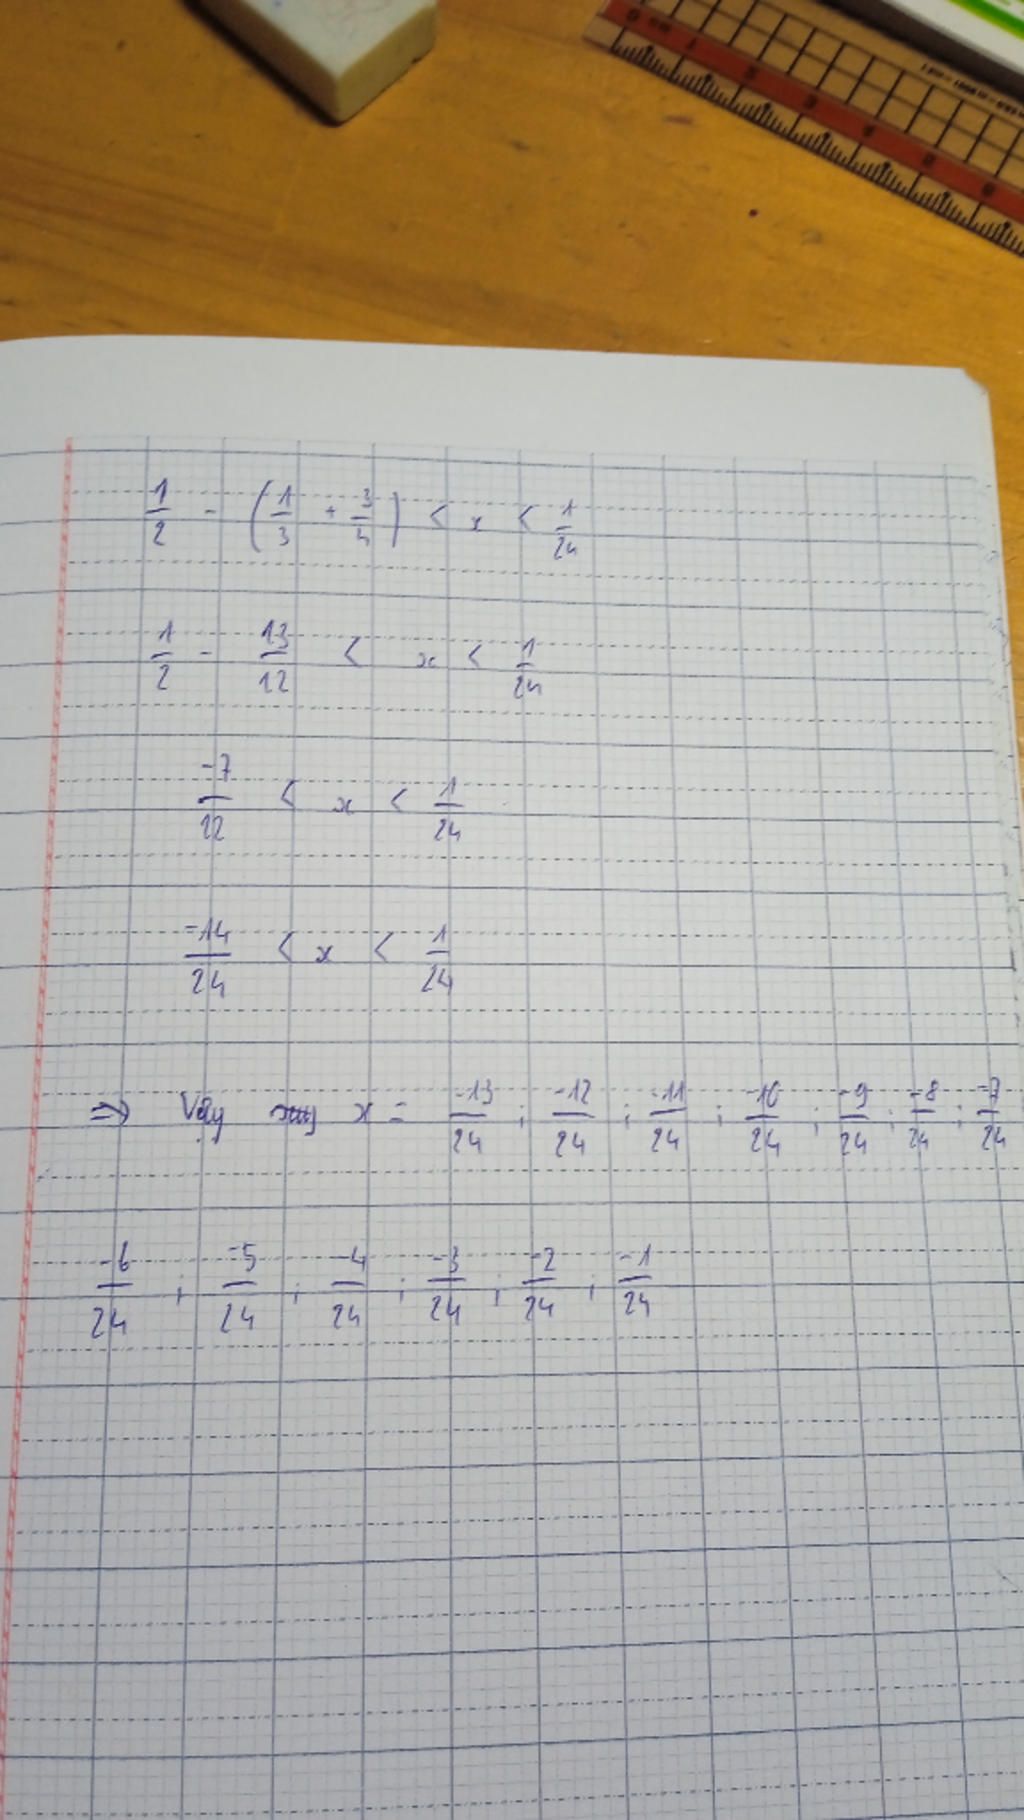 1/2 - (1/3 + 3/4) < x < 1/24
1/2 - 13/12 < x < 1/24
-7/12 < x < 1/24
-14/24 < x < 1/24
=> Vậy x = -13/24 ; -12/24 ; -11/24 ; -10/24 ; -9/24 ; -8/24 ; -7/24
-6/24 ; -5/24 ; -4/24 ; -3/24 ; -2/24 ; -1/24